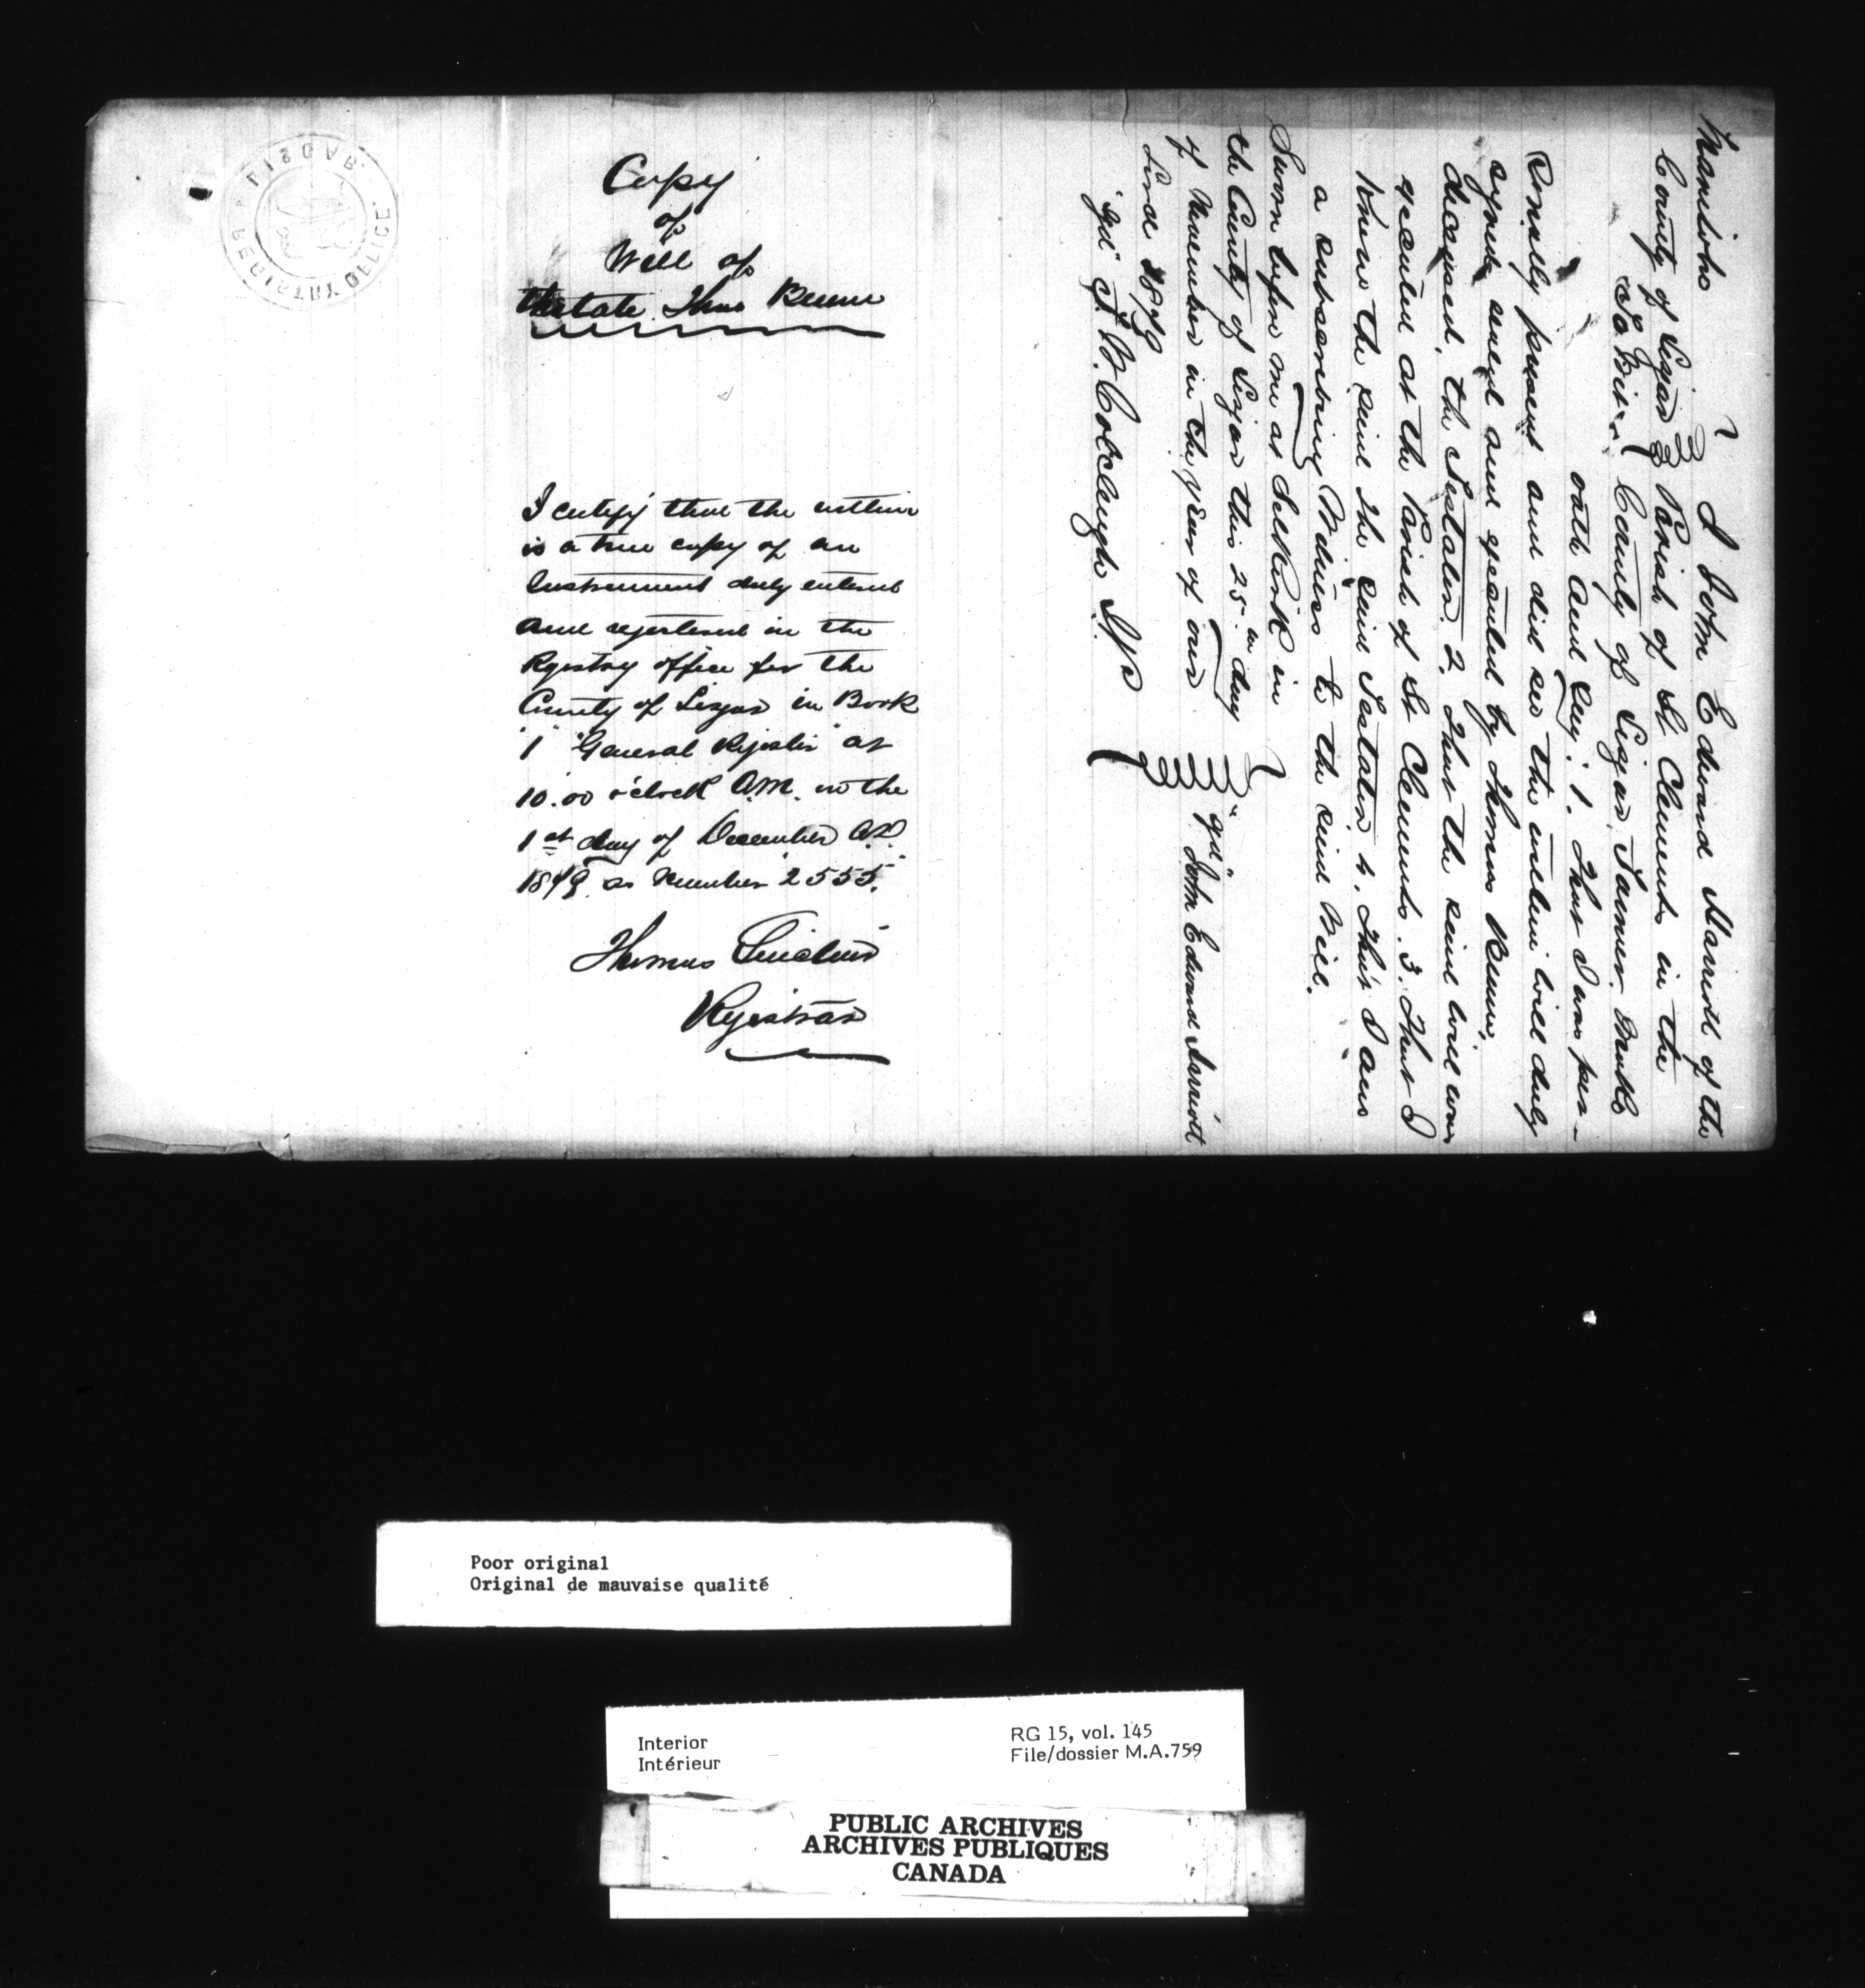 Copy
of
Will of
the late Thos Bunn
I certify that the within
is a true copy of an
Instrument duly entered
and registered in the
Registry office for the
County of Lisgar in Book
"1" "General Register" at
10.00 o'clock A.M. on the
1st day of December A.D.
1879 as Number "2555."
Thomas Sinclair
Registrar
Manitoba
County of Lisgar
To Wit
I John Edward Harriott of the
Parish of St Clements in the
County of Lisgar, Farmer. Make
oath and say: 1. That I was per-
sonally present and did see the within will duly
signed sealed and executed by Thomas Bunn,
deceased, the Testator. 2. That the said will was
executed at the Parish of St Clements. 3. That I
know the said the said Testator 4. That I am
a subscribing Witness to the said Will.
Sworn before me at Selkirk in
the County of Lisgar this 25th day
of November in the year of our
Lord 1879
"sgd" John Edward Harriott
"sgd" F. W. Colcleugh J.P.
LISGAR
REGISTRY OFFICE
Poor original
Original de mauvaise qualité
Interior
Intérieur
RG 15, vol. 145
File/dossier M.A.759
PUBLIC ARCHIVES
ARCHIVES PUBLIQUES
CANADA